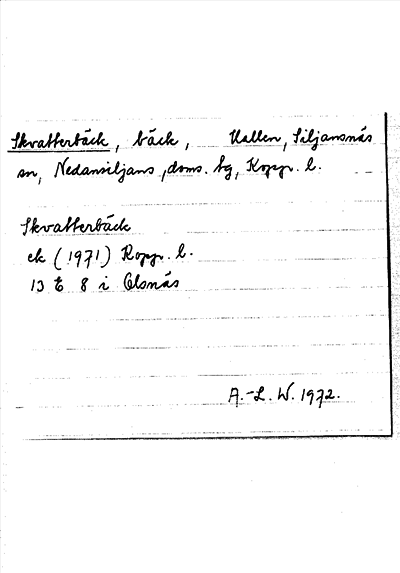 Skvatterbäck, bäck, Hallen, Siljansnäs
sn, Nedansiljans, doms. hg, Kopp. l.
Skvatterbäck
ek (1971) Kopp. l.
13 E 8 i Olsnäs
A.-L. W. 1972.